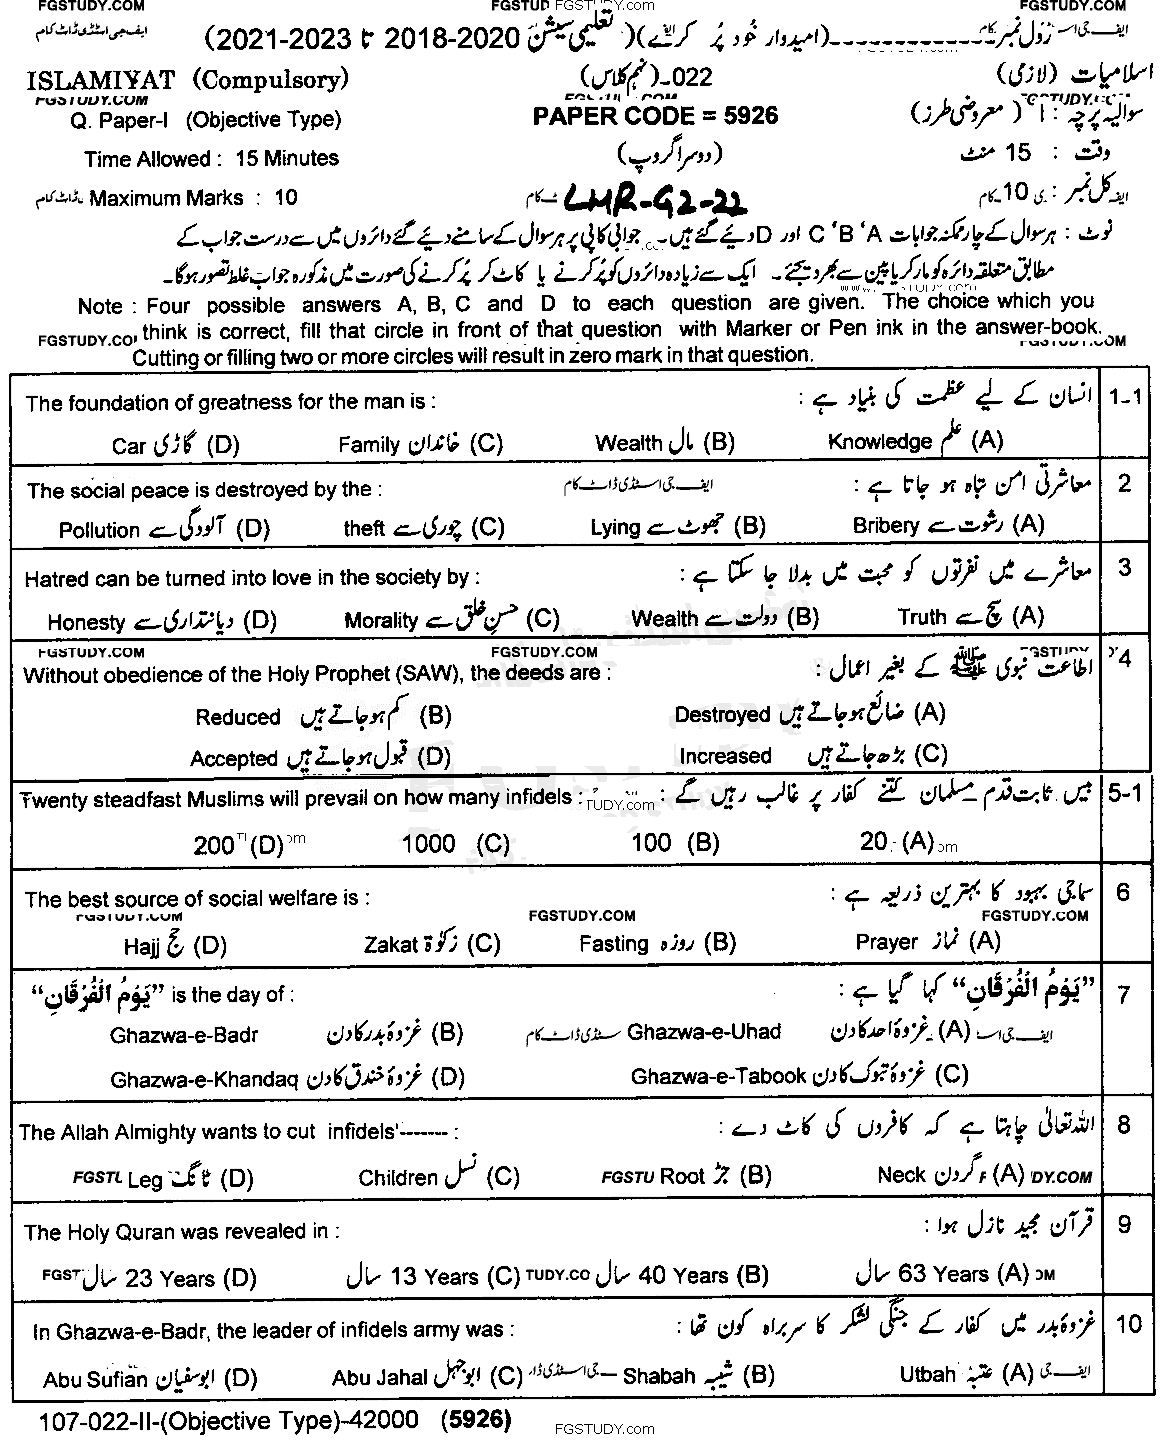 FGSTUDY.COM FGSTUDY.com FGSTUDY.COM
رول نمبر ۔۔۔۔۔۔۔۔۔۔۔۔ (امیدوار خود پُر کرے) (تعلیمی سیشن 2020-2018 تا 2023-2021) ایف جی اسٹڈی ڈاٹ کام
ISLAMIYAT (Compulsory) 022-(نہم کلاس) اسلامیات (لازمی)
FGSTUDY.COM
Q. Paper-I (Objective Type) PAPER CODE = 5926 سوالیہ پرچہ : I (معروضی طرز)
Time Allowed : 15 Minutes (دوسرا گروپ) وقت : 15 منٹ
Maximum Marks : 10 LHR-G2-22 کل نمبر : 10
نوٹ : ہر سوال کے چار ممکنہ جوابات A، B، C اور D دیئے گئے ہیں۔ جوابی کاپی پر ہر سوال کے سامنے دیئے گئے دائروں میں سے درست جواب کے
مطابق متعلقہ دائرہ کو مارکر یا پین سے بھر دیجئے۔ ایک سے زیادہ دائروں کو پُر کرنے یا کاٹ کر پُر کرنے کی صورت میں مذکورہ جواب غلط تصور ہوگا۔
Note : Four possible answers A, B, C and D to each question are given. The choice which you
FGSTUDY.CO think is correct, fill that circle in front of that question with Marker or Pen ink in the answer-book.
Cutting or filling two or more circles will result in zero mark in that question.
The foundation of greatness for the man is : انسان کے لیے عظمت کی بنیاد ہے : 1-1
Car گاڑی (D) Family خاندان (C) Wealth مال (B) Knowledge علم (A)
The social peace is destroyed by the : ایف جی اسٹڈی ڈاٹ کام معاشرتی امن تباہ ہو جاتا ہے : 2
Pollution آلودگی سے (D) theft چوری سے (C) Lying جھوٹ سے (B) Bribery رشوت سے (A)
Hatred can be turned into love in the society by : معاشرے میں نفرتوں کو محبت میں بدلا جا سکتا ہے : 3
Honesty دیانتداری سے (D) Morality حسنِ خلق سے (C) Wealth دولت سے (B) Truth سچ سے (A)
FGSTUDY.COM FGSTUDY.COM
Without obedience of the Holy Prophet (SAW), the deeds are : اطاعت نبوی ﷺ کے بغیر اعمال : 4
Reduced کم ہو جاتے ہیں (B) Destroyed ضائع ہو جاتے ہیں (A)
Accepted قبول ہو جاتے ہیں (D) Increased بڑھ جاتے ہیں (C)
Twenty steadfast Muslims will prevail on how many infidels : بیس ثابت قدم مسلمان کتنے کفار پر غالب رہیں گے : 5-1
200 (D) 1000 (C) 100 (B) 20 (A)
The best source of social welfare is : سماجی بہبود کا بہترین ذریعہ ہے : 6
FGSTUDY.COM FGSTUDY.COM FGSTUDY.COM
Hajj حج (D) Zakat زکوٰۃ (C) Fasting روزہ (B) Prayer نماز (A)
”يَوْمُ الْفُرْقَانِ“ is the day of : ”يَوْمُ الْفُرْقَانِ“ کہا گیا ہے : 7
Ghazwa-e-Badr غزوۂ بدر کا دن (B) Ghazwa-e-Uhad غزوۂ احد کا دن (A)
Ghazwa-e-Khandaq غزوۂ خندق کا دن (D) Ghazwa-e-Tabook غزوۂ تبوک کا دن (C)
The Allah Almighty wants to cut infidels'------- : اللہ تعالیٰ چاہتا ہے کہ کافروں کی کاٹ دے : 8
Leg ٹانگ (D) Children نسل (C) Root جڑ (B) Neck گردن (A)
The Holy Quran was revealed in : قرآن مجید نازل ہوا : 9
سال 23 Years (D) سال 13 Years (C) سال 40 Years (B) سال 63 Years (A)
In Ghazwa-e-Badr, the leader of infidels army was : غزوۂ بدر میں کفار کے جنگی لشکر کا سربراہ کون تھا : 10
Abu Sufian ابوسفیان (D) Abu Jahal ابوجہل (C) Shabah شیبہ (B) Utbah عتبہ (A)
107-022-II-(Objective Type)-42000 (5926) FGSTUDY.com